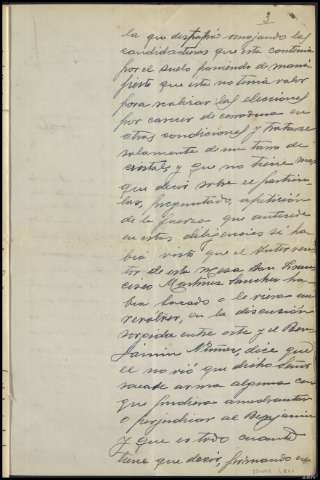 3
la que destapó arrojando las
candidaturas que esta contenia
por el suelo poniendo de mani
fiesto que esta no tenia valor
para realizar las elecciones
por carecer de cerradura en
otras condiciones y tratarse
solamente de un tarro de
cristal, y que no tiene mas
que decir sobre el particu-
lar, preguntado, a petición
de la fuerza que antecede
en estas diligencias si ha-
bia visto que el Interven-
tor de esta mesa Don Fran-
cisco Martinez Sanchez ha-
bia sacado a le
revolver, en la discusión
surgida entre este y el Ben-
jamin Nuñez, dice que
el no vió que dicho Señor
sacase arma alguna con
que pudiera amedrantar
o perjudicar al Benjamin
y que es todo cuanto
tiene que decir, firmando en